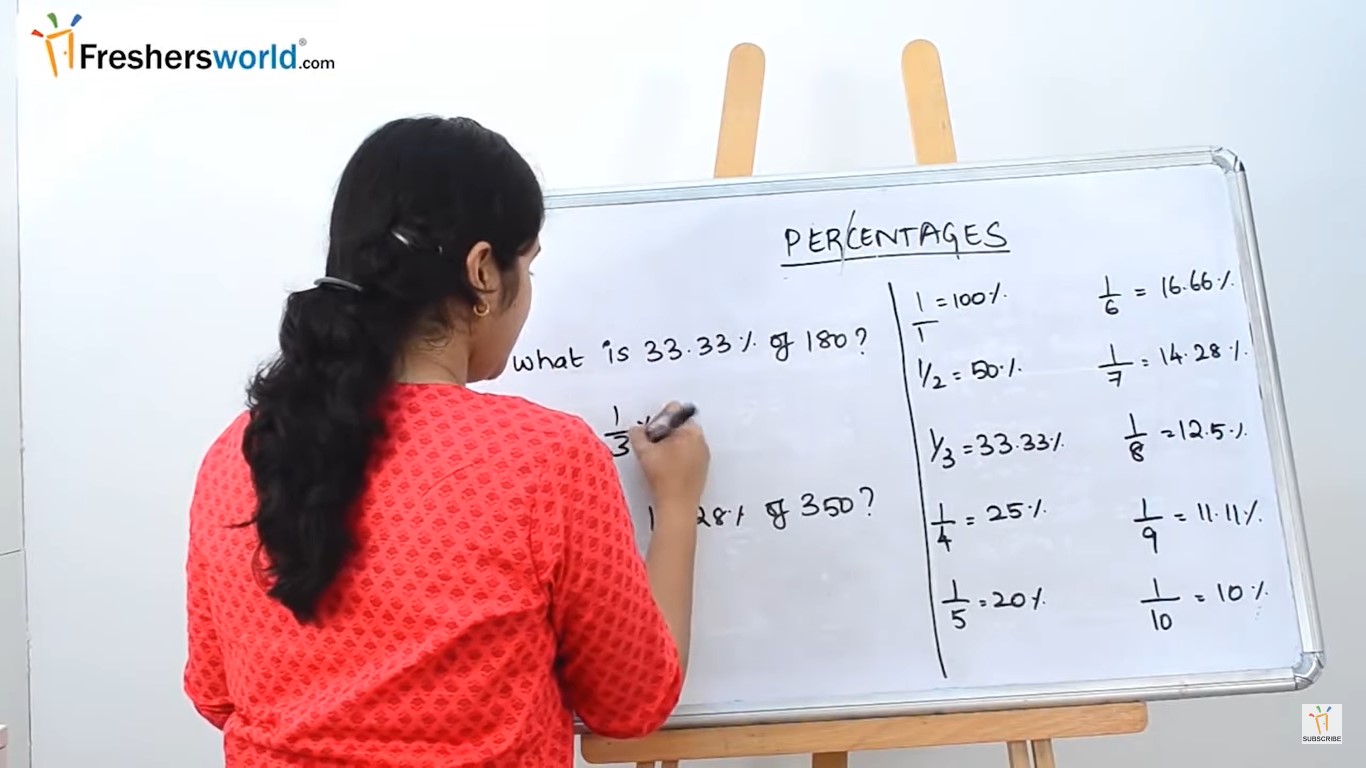 Freshersworld.com
PERCENTAGES
What is 33.33% of 180?
1/3 ×
28% of 350?
1/1 = 100%
1/2 = 50%
1/3 = 33.33%
1/4 = 25%
1/5 = 20%
1/6 = 16.66%
1/7 = 14.28%
1/8 = 12.5%
1/9 = 11.11%
1/10 = 10%
SUBSCRIBE